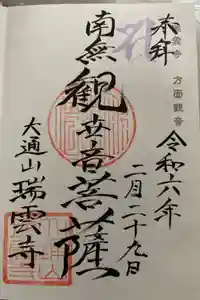 奉拝
雲寺 方面観音
令和六年
二月二十九日
南無観世音菩薩
大通山瑞雲寺